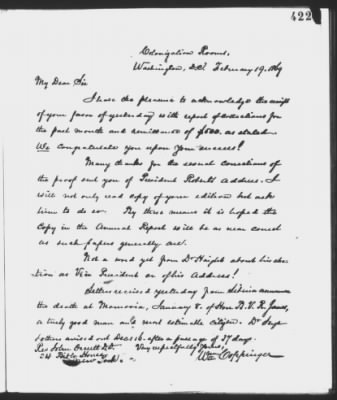 422
Colonization Rooms,
Washington, D.C. February 19. 1869
My Dear Sir
I have the pleasure to acknowledge the receipt
of your favor of yesterday with report of collections for
the past month and remittance of $500. as stated.
We congratulate you upon your success!
Many thanks for the several corrections of
the proof sent you of President Roberts Address. I
will not only read copy of your edition but ask
him to do so. By these means it is hoped the
copy in the Annual Report will be as near correct
as such papers generally are.
Not a word yet from Dr Haight about his elec-
tion as Vice President or of his Address!
Letters received yesterday from Liberia announce
the death at Monrovia, January 8. of Hon B. V. R. James,
a truly good man and most estimable citizen. Dr
Letters arrived out Dec 16. after a passage of 37 days.
Rev John Orcutt D.D. Very respectfully Yours,
24 Bible House Wm Coppinger
New York.